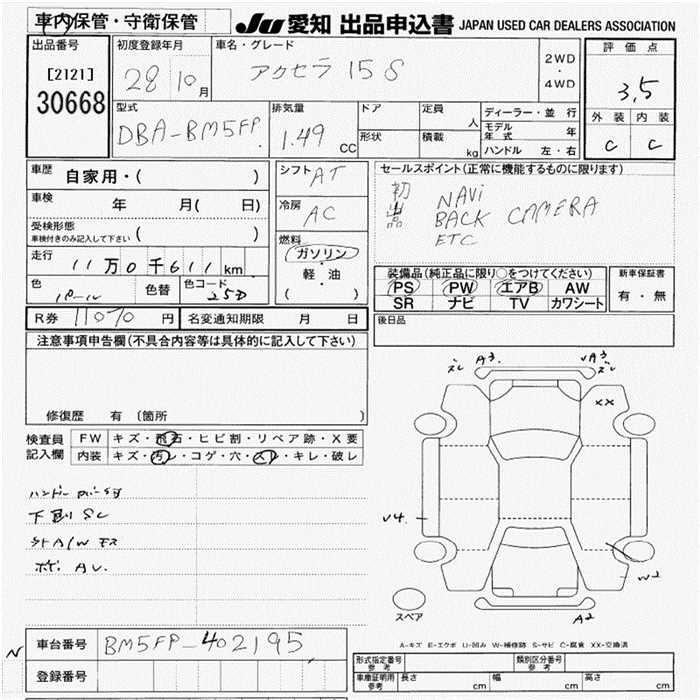 車内保管・守衛保管
JU 愛知 出品申込書 JAPAN USED CAR DEALERS ASSOCIATION
出品番号
[2121]
30668
初度登録年月
28 10月
車名・グレード
アクセラ 15S
2WD
・
4WD
評価点
3,5
外装 内装
C C
型式
DBA-BM5FP
排気量
1.49 CC
ドア
形状
定員 人
積載 kg
ディーラー・並行
モデル年式 年
ハンドル 左・右
車歴 自家用・( )
車検 年 月( 日)
受検形態
車検付きのみ記入して下さい ( )
走行 11万0千611km
色 色替 色コード
25D
シフト AT
冷房 AC
燃料
ガソリン
・
軽・油
( )
セールスポイント(正常に機能するものに限ります)
初出品
NAVi
BACK CAMERA
ETC
装備品(純正品に限り○をつけてください)
PS PW エアB AW
SR ナビ TV カワシート
新車保証書
有・無
R券 11070 円 名変通知期限 月 日
後日品
注意事項申告欄(不具合内容等は具体的に記入して下さい)
修復歴 有 (箇所 )
検査員記入欄
FW キズ・飛石・ヒビ割・リペア跡・X要
内装 キズ・汚レ・コゲ・穴・スレ・キレ・破レ
下廻 SC
ズレ A3 √A3 ズレ
XX
√4
W2
A2
スペア
A-キズ E-エクボ U-凹み W-補修跡 S-サビ C-腐食 XX-交換済
N
車台番号 BM5FP-402195
登録番号
型式指定番号 参考 類別区分番号 参考
車庫証明用 参考 長さ cm 幅 cm 高さ cm